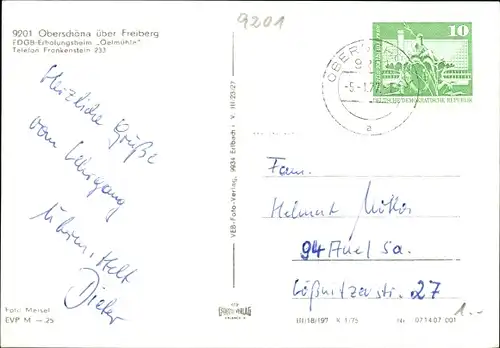 9201
9201 Oberschöna über Freiberg
FDGB-Erholungsheim „Oelmühle"
Telefon Frankenstein 233
10
DEUTSCHE DEMOKRATISCHE REPUBLIK
Herzliche Grüße
vom Lehrgang
Dieter
VEB-Foto-Verlag, 9934 Erlbach i. V. III/23/27
Fam.
Helmut
94 Aue/Sa.
Lößnitzerstr. 27
1.-
Foto: Meisel
EVP M —,25
III/18/197 K 1/75 Nr. 07 14 07 001